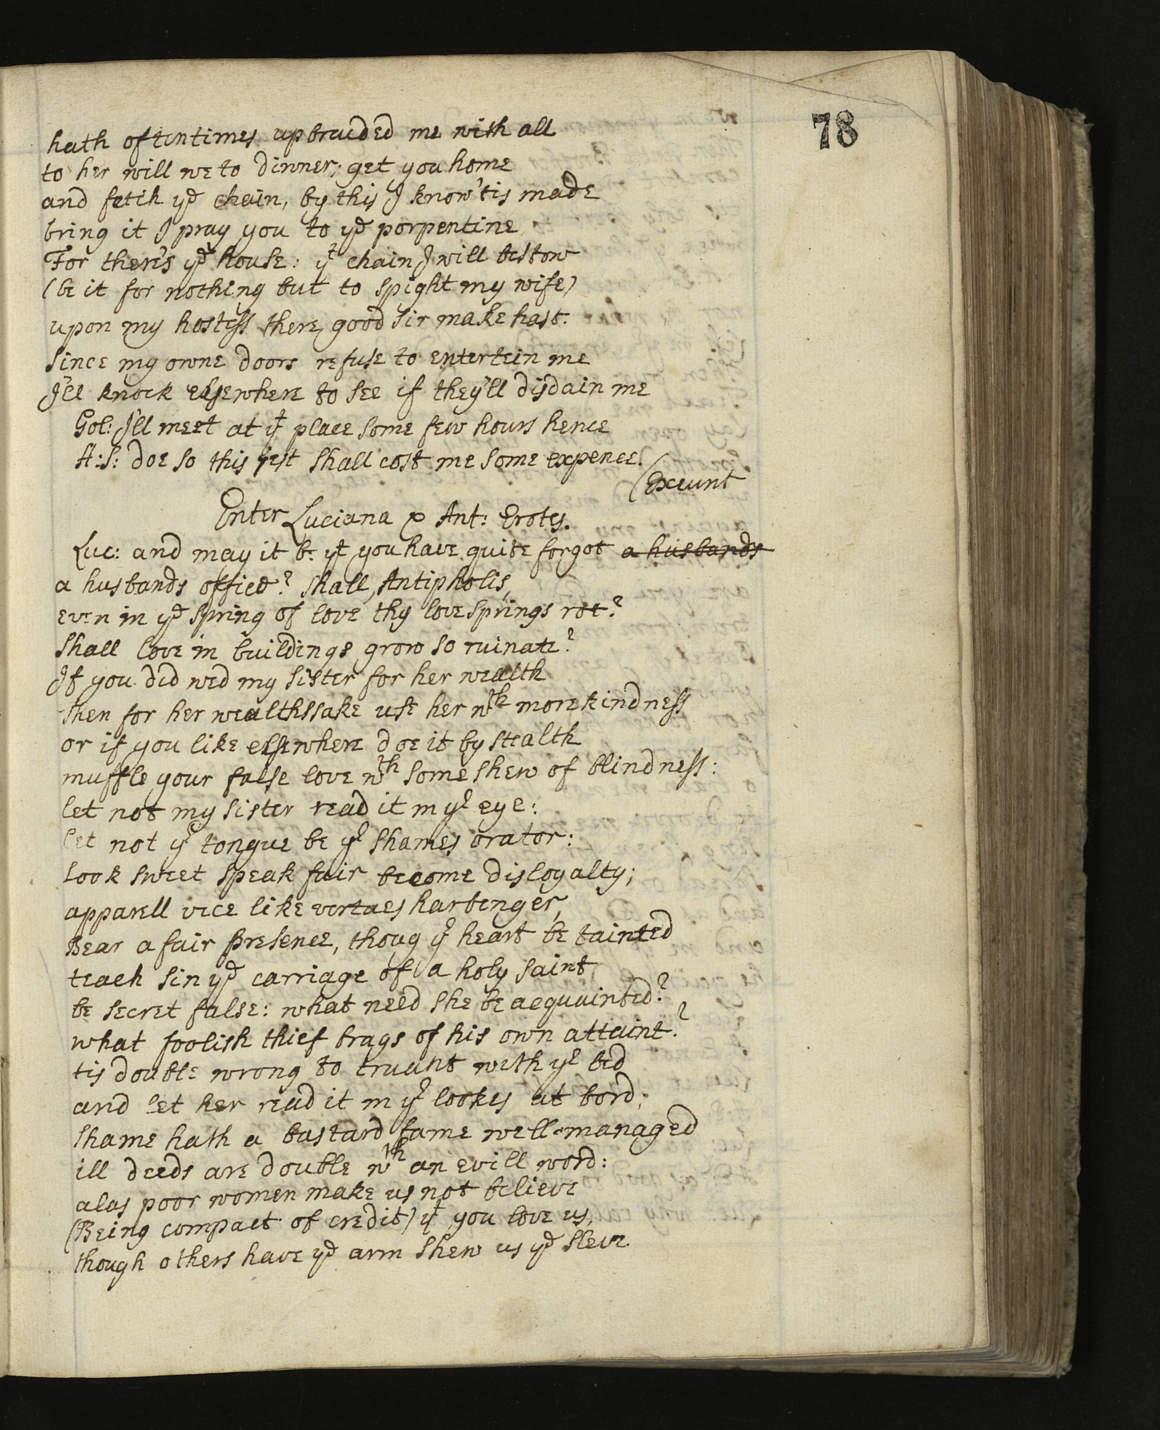 78
hath oftentimes upbraided me with all
to her will we to dinner; get you home
and fetch yᵉ chain, by this I know 'tis made
bring it I pray you to yᵉ porpentine
For there's yᵉ house: yᵗ chain I will bestow
(be it for nothing but to spight my wife)
upon my hostess there, good sir make hast.
since my owne doors refuse to entertein me
I'll knock elsewhere to see if they'll disdain me
Gol: I'll meet at yᵗ place some few hours hence
A:S: doe so this jest shall cost me some expence.
(Exeunt
Enter Luciana & Ant: Erotes.
Luc: and may it be yᵗ you have quite forgot a husbands
a husbands office? shall, Antipholis,
even in yᵉ spring of love thy love springs rot?
shall love in buildings grow so ruinate?
If you did wed my sister for her wealth
then for her wealths sake use her wᵗʰ more kindness
or if you like elsewhere doe it by stealth
muffle your false love wᵗʰ some shew of blindness:
let not my sister read it in yʳ eye:
let not yʳ tongue be yʳ shames orator:
look sweet speak fair become disloyalty;
apparell vice like vertues harbenger,
Bear a fair presence, thoug yʳ heart be tainted
teach sin yᵉ carriage of a holy saint
be secret false: what need she be acquainted?
what foolish thief brags of his own attaint?
tis double wrong to truant with yʳ bed
and let her read it in yʳ lookes at bord;
shame hath a bastard fame well-managed
ill deeds are double wᵗʰ an evill word:
alas poor women make us not believe
(Being compact of credit) yᵗ you love us,
though others have yᵉ arm shew us yᵉ sleve.